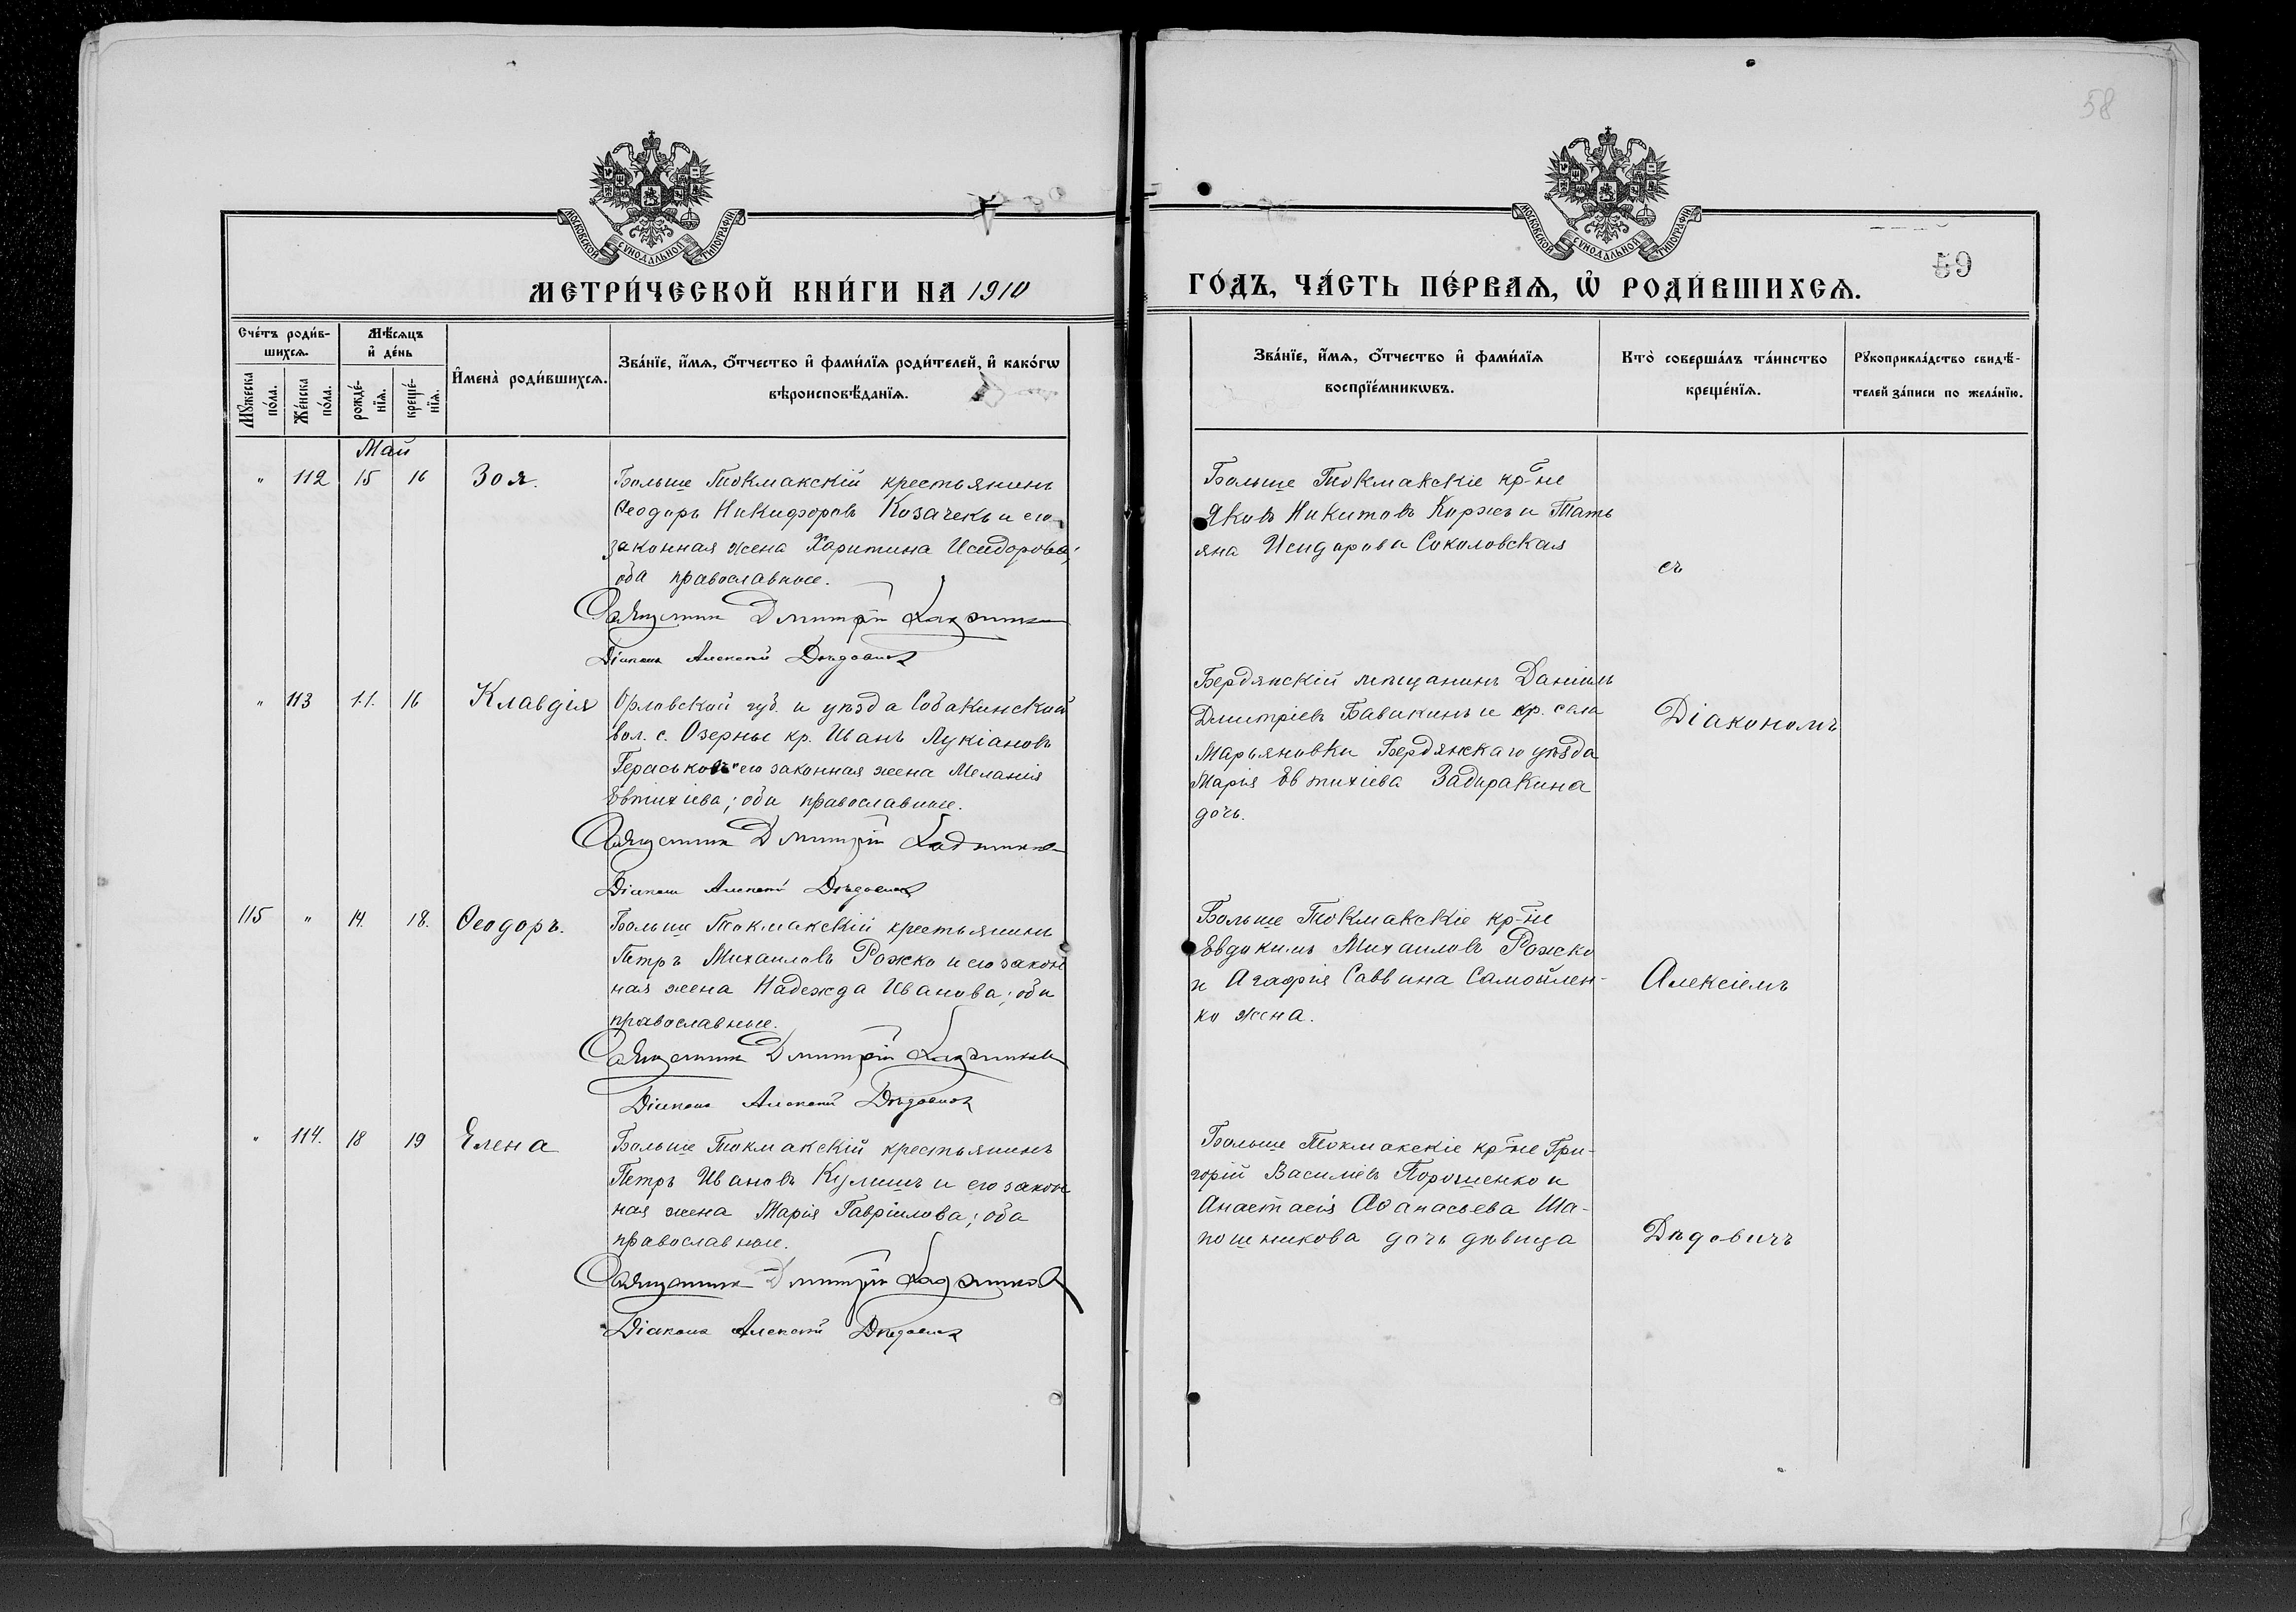 58
МОСКОВСКОЙ СѴНОДАЛЬНОЙ ТИПОГРАФІИ
МОСКОВСКОЙ СѴНОДАЛЬНОЙ ТИПОГРАФІИ
59
МЕТРИ́ЧЕСКОЙ КНИ́ГИ НА 1910
ГО́ДЪ, ЧА́СТЬ ПЕ́РВАѦ, Ѡ҆ РОДИ́ВШИХСѦ.
Сче́тъ роди́в-
шихсѧ.
Мꙋ́жеска
по́ла.
Же́нска
по́ла.
Мѣ́сѧцъ
и҆ де́нь
рожде́-
нїѧ.
креще́-
нїѧ.
И҆мена̀ роди́вшихсѧ.
Зва́нїе, и҆́мѧ, ѻ҆́тчество и҆ фами́лїѧ роди́телей, и҆ како́гѡ
вѣроисповѣ́данїѧ.
Зва́нїе, и҆́мѧ, ѻ҆́тчество и҆ фами́лїѧ
воспрїе́мникѡвъ.
Кто̀ соверша́лъ та́инство
креще́нїѧ.
Рꙋкоприкла́дство свидѣ́-
телей за́писи по жела́нїю.
Май
" 112 15 16 Зоя.
Больше Токмакскій крестьянинъ
Ѳеодоръ Никифоровъ Козачекъ и его
законная жена Харитина Исидорова;
оба православные.
Священникъ Димитрій
Діаконъ Алексѣй Дѣдовичъ
Больше Токмакскіе кр-не
Яковъ Никитовъ Коржъ и Тать
яна Исидорова Соколовская
съ
" 113 11. 16 Клавдія
Орловской губ. и уѣзда Собакинской
вол. с. Озерны кр. Иванъ Лукіановъ
Гераськовъ и его законная жена Меланія
Евтихіева; оба православные.
Священникъ Димитрій
Діаконъ Алексѣй Дѣдовичъ
Бердянскій мѣщанинъ Даніилъ
Димитріевъ Бавакинъ и кр. села
Марьяновки Бердянскаго уѣзда
Марія Евтихіева Задиракина
дочь.
Діакономъ
115 " 14. 18. Ѳеодоръ.
Больше Токмакскій крестьянинъ
Петръ Михаиловъ Рожко и его закон
ная жена Надежда Иванова; оба
православные.
Священникъ Димитрій
Діаконъ Алексѣй Дѣдовичъ
Больше Токмакскіе кр-не
Евдокимъ Михаиловъ Рожко
и Агафія Саввина Самойлен-
ко жена.
Алексіемъ
" 114. 18 19 Елена
Больше Токмакскій крестьянинъ
Петръ Ивановъ Кулишъ и его закон
ная жена Марія Гавріилова; оба
православные.
Священникъ Димитрій
Діаконъ Алексѣй Дѣдовичъ
Больше Токмакскіе кр-не Гри-
горій Василіевъ Порошенко и
Анастасія Аѳанасьева Ша-
пошникова дочь дѣвица
Дѣдовичъ